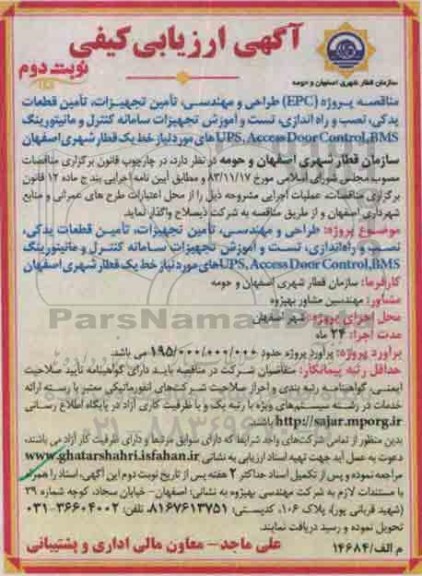 آگهی ارزیابی کیفی
نوبت دوم
سازمان قطار شهری اصفهان و حومه
مناقصه پروژه (EPC) طراحی و مهندسی، تأمین تجهیزات، تأمین قطعات
یدکی، نصب و راه اندازی، تست و آموزش تجهیزات سامانه کنترل و مانیتورینگ
UPS, Access Door Control, BMS های مورد نیاز خط یک قطار شهری اصفهان
سازمان قطار شهری اصفهان و حومه در نظر دارد، در چارچوب قانون برگزاری مناقصات
مصوب مجلس شورای اسلامی مورخ ۸۳/۱۱/۱۷ و مطابق آیین نامه اجرایی بند ج ماده ۱۲ قانون
برگزاری مناقصات، عملیات اجرایی مشروحه ذیل را از محل اعتبارات طرح های عمرانی و منابع
شهرداری اصفهان و از طریق مناقصه به شرکت ذیصلاح واگذار نماید.
موضوع پروژه: طراحی و مهندسی، تأمین تجهیزات، تأمین قطعات یدکی،
نصب و راه‌اندازی، تست و آموزش تجهیزات سامانه کنترل و مانیتورینگ
UPS, Access Door Control, BMS های مورد نیاز خط یک قطار شهری اصفهان
کارفرما: سازمان قطار شهری اصفهان و حومه
مشاور: مهندسین مشاور بهپروه
محل اجرای پروژه: شهر اصفهان
مدت اجرا: ۲۴ ماه
برآورد پروژه: برآورد پروژه حدود ۱۹۵/۰۰۰/۰۰۰/۰۰۰ می باشد.
حداقل رتبه پیمانکار: متقاضیان شرکت در مناقصه باید دارای گواهینامه تأیید صلاحیت
ایمنی، گواهینامه رتبه بندی و احراز صلاحیت شرکت‌های انفورماتیکی معتبر با رسته ارائه
خدمات در رشته سیستم‌های ویژه با رتبه یک و با ظرفیت کاری آزاد در پایگاه اطلاع رسانی
http://sajar.mporg.ir باشند.
بدین منظور از تمامی شرکت‌های واجد شرایط که دارای سوابق مرتبط و دارای ظرفیت کار آزاد می باشند،
دعوت به عمل آید جهت تهیه اسناد ارزیابی به نشانی www.ghatarshahri.isfahan.ir
مراجعه نموده و پس از تکمیل اسناد حداکثر ۲ هفته پس از تاریخ نوبت دوم این آگهی، اسناد را همراه
با مستندات لازم به شرکت مهندسی بهپروه به نشانی: اصفهان- خیابان سجاد، کوچه شماره ۲۹
(شهید قربانی پور)، پلاک ۱۰۶، کدپستی: ۸۱۶۷۶۱۳۷۵۱ تلفن: ۳۶۶۰۴۰۰۲-۰۳۱
تحویل نموده و رسید دریافت نمایند.
علی ماجد- معاون مالی اداری و پشتیبانی
م الف/۱۴۶۸۴
ParsNamadData